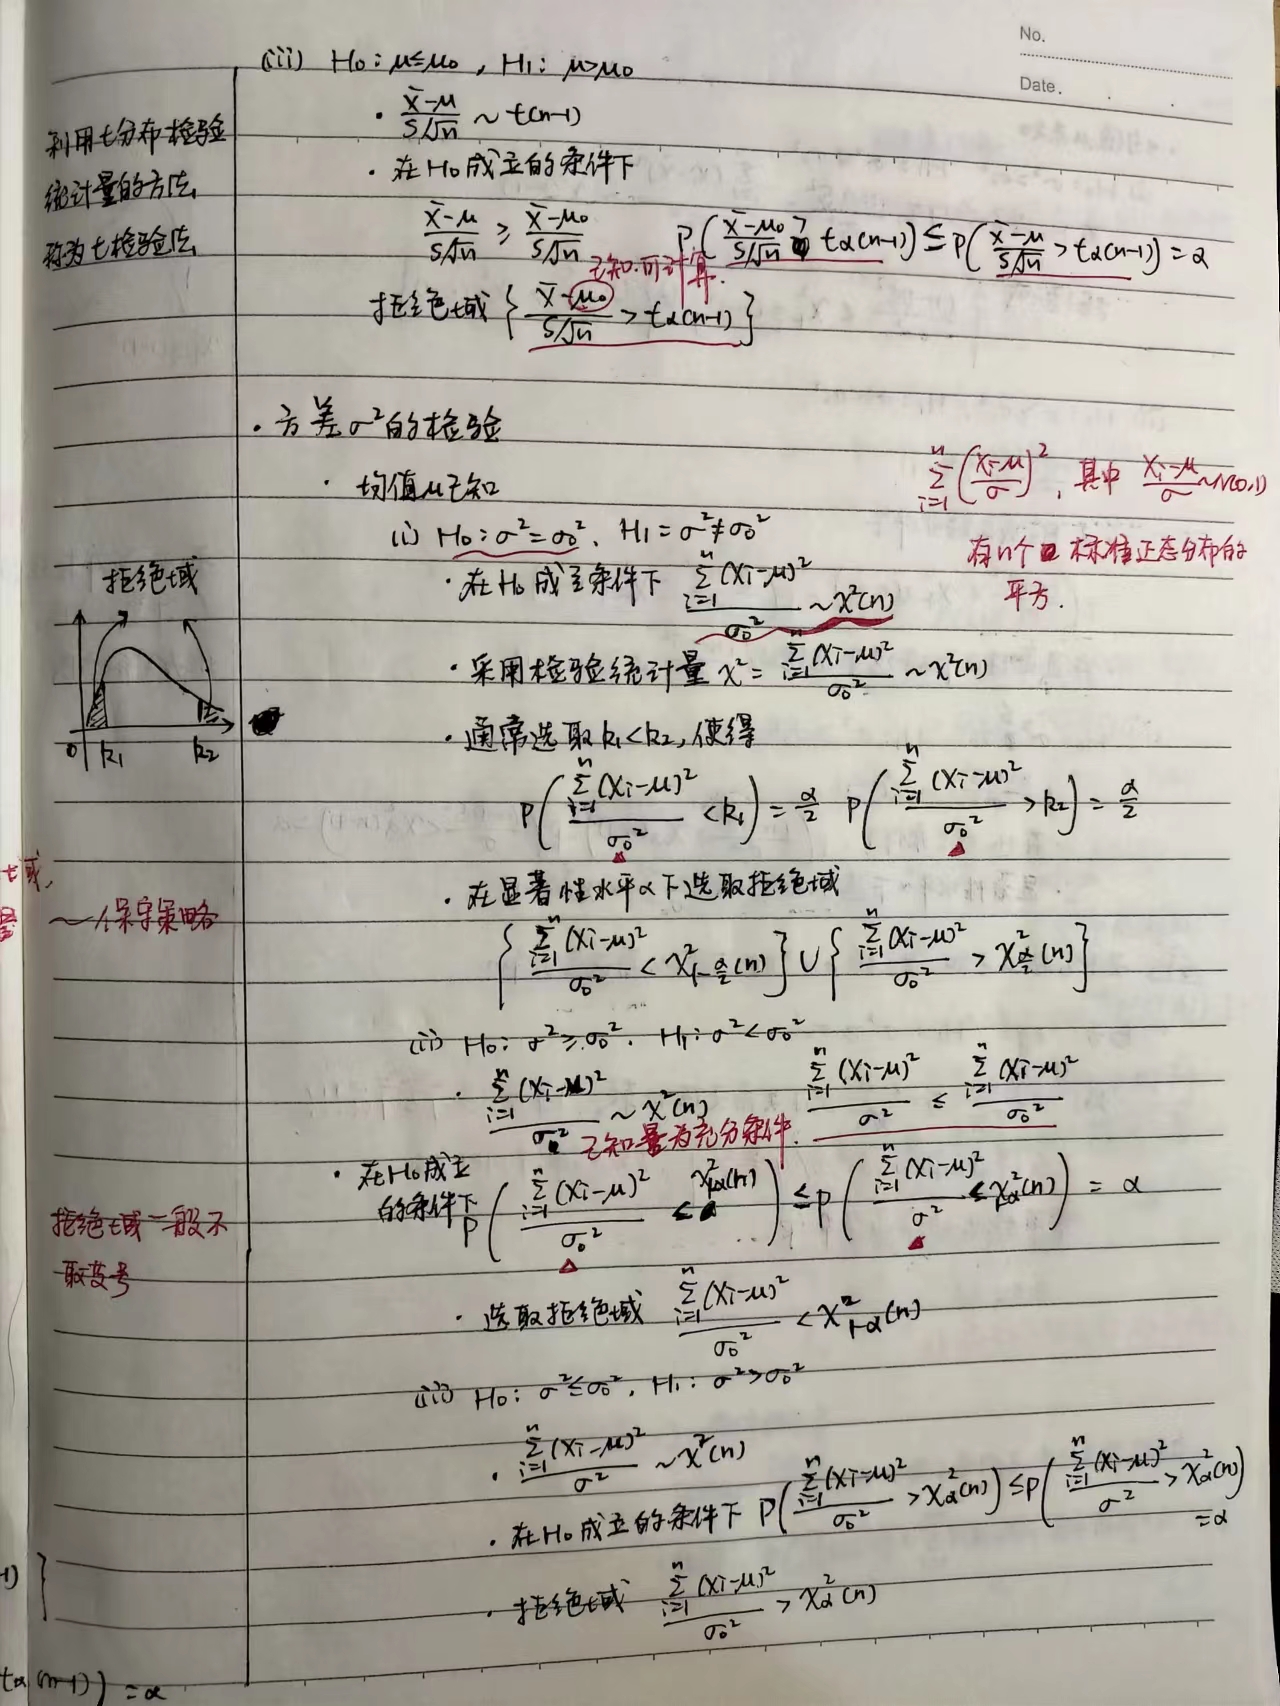 No.
Date.
(iii) H₀: μ≤μ₀, H₁: μ>μ₀
· (x̄-μ)/(S/√n) ~ t(n-1)
利用t分布检验
统计量的方法,
称为t检验法
· 在H₀成立的条件下
(x̄-μ)/(S/√n) ≥ (x̄-μ₀)/(S/√n) P((x̄-μ₀)/(S/√n) > tα(n-1)) ≤ P((x̄-μ)/(S/√n) > tα(n-1)) = α
已知.可计算.
拒绝域 {(x̄-μ₀)/(S/√n) > tα(n-1)}
· 方差σ²的检验
· 均值μ已知
∑ᵢ₌₁ⁿ((Xi-μ)/σ)², 其中 (Xi-μ)/σ ~N(0,1)
有n个 标准正态分布的
平方.
(i) H₀: σ²=σ₀², H₁=σ²≠σ₀²
· 在H₀成立条件下 ∑ᵢ₌₁ⁿ(Xi-μ)²/σ₀² ~χ²(n)
拒绝域
0 k₁ k₂
· 采用检验统计量 χ²= ∑ᵢ₌₁ⁿ(Xi-μ)²/σ₀² ~χ²(n)
· 通常选取k₁<k₂,使得
P(∑ᵢ₌₁ⁿ(Xi-μ)²/σ₀² <k₁) = α/2 P(∑ᵢ₌₁ⁿ(Xi-μ)²/σ₀² >k₂) = α/2
· 在显著性水平α下选取拒绝域
域,
~保守策略
{∑ᵢ₌₁ⁿ(Xi-μ)²/σ₀² < χ²₁₋α/₂(n)} ∪ {∑ᵢ₌₁ⁿ(Xi-μ)²/σ₀² > χ²α/₂(n)}
(ii) H₀: σ²≥σ₀². H₁: σ²<σ₀²
· ∑ᵢ₌₁ⁿ(Xi-μ)²/σ² ~ χ²(n) ∑ᵢ₌₁ⁿ(Xi-μ)²/σ² ≤ ∑ᵢ₌₁ⁿ(Xi-μ)²/σ₀²
已知量为充分条件.
· 在H₀成立
的条件下 P(∑ᵢ₌₁ⁿ(Xi-μ)²/σ₀² ≤ χ²₁₋α(n)) ≤ P(∑ᵢ₌₁ⁿ(Xi-μ)²/σ² ≤ χ²₁₋α(n)) = α
拒绝域一般不
取等号
· 选取拒绝域 ∑ᵢ₌₁ⁿ(Xi-μ)²/σ₀² < χ²₁₋α(n)
(iii) H₀: σ²≤σ₀², H₁: σ²>σ₀²
· ∑ᵢ₌₁ⁿ(Xi-μ)²/σ² ~χ²(n)
· 在H₀成立的条件下 P(∑ᵢ₌₁ⁿ(Xi-μ)²/σ₀² >χ²α(n)) ≤ P(∑ᵢ₌₁ⁿ(Xi-μ)²/σ² > χ²α(n))
=α
· 拒绝域 ∑ᵢ₌₁ⁿ(Xi-μ)²/σ₀² > χ²α(n)
-1) }
tα(n-1)) = α